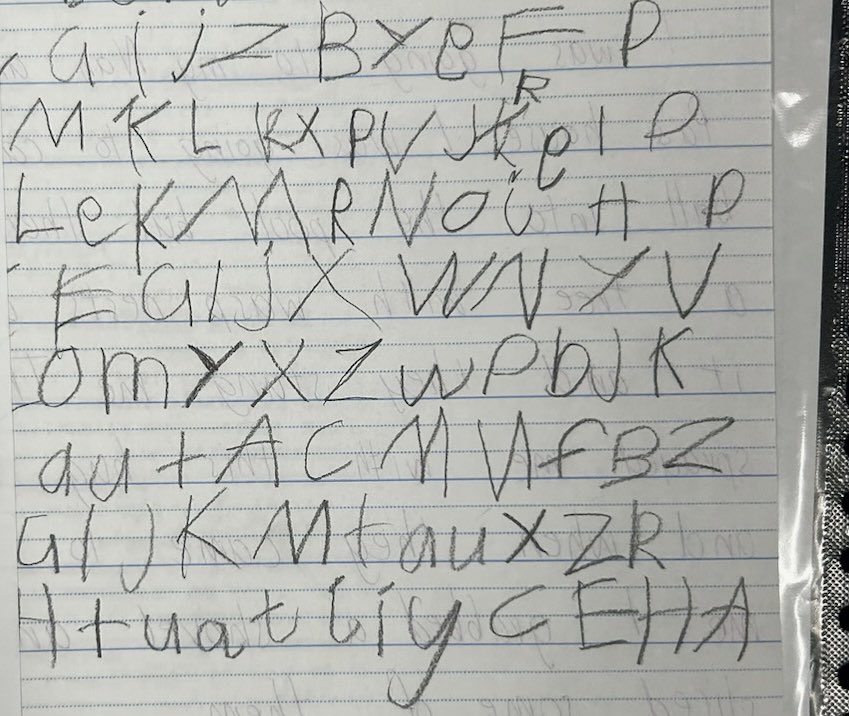 G i j Z B Y e F P
M K L K X P V J K R e I P
L e K M R N O i H P
E G I J X W N Y V
O m Y X Z w P b J K
a u t A C M N f B Z
G I J K M t a u X Z R
H t u a t l i y C E H A